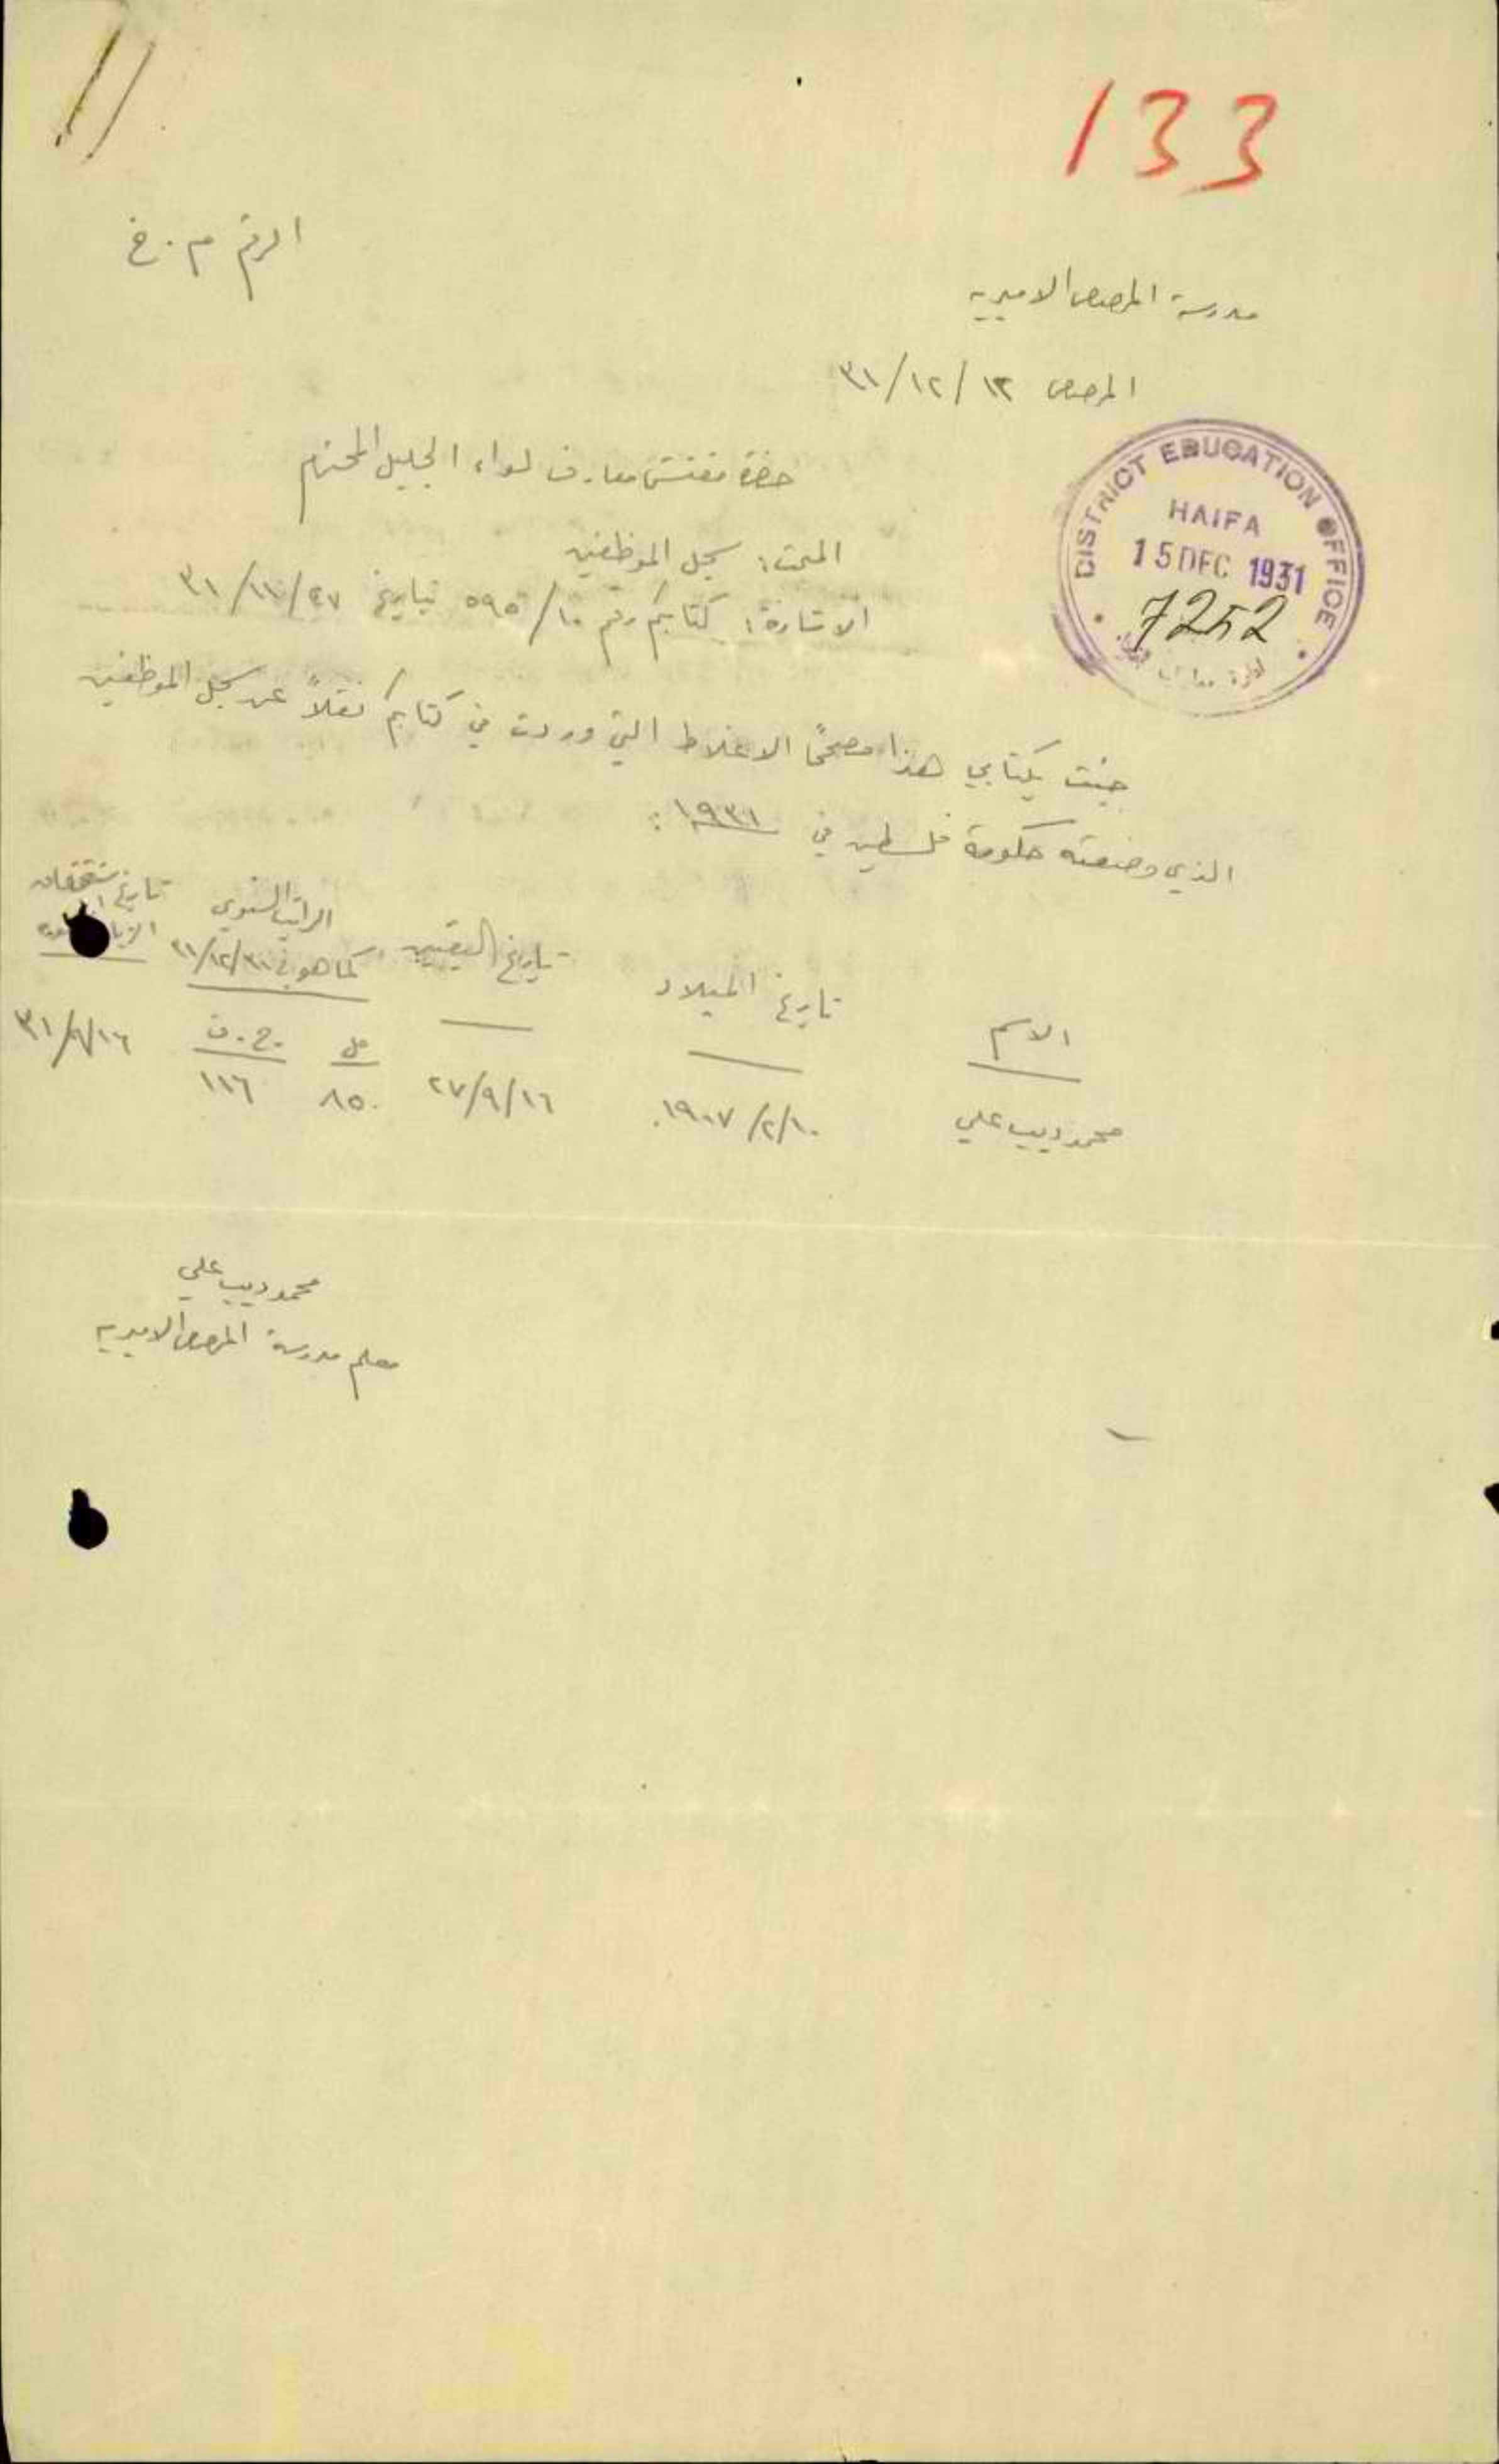 133
الرقم م.خ
مدرسة المصمص الاميرية
المصمص ١٣/١٢/٣١
DISTRICT EDUCATION OFFICE
HAIFA
15 DEC 1931
7252
ادارة معارف
حضرة مفتش معارف لواء الجليل المحترم
المبحث: سجل الموظفين
الاشارة: كتابكم رقم ١٠/٥٩٥ تاريخ ٢٧/١١/٣١
جئت بكتابي هذا مصححًا الاغلاط التي وردت في كتابكم نقلاً عن سجل الموظفين
الذي وضعته حكومة فلسطين في ١٩٣١:
الاسم
تاريخ الميلاد
تاريخ التعيين
الراتب السنوي
كما هو في ٣١/١٢/٣١
تاريخ استحقاق
مل
ج.ف
محمد ديب علي
١٩٠٧/٢/١٠
٢٧/٩/١٦
٨٥٠
١١٦
٣١/٩/١٦
محمد ديب علي
معلم مدرسة المصمص الاميرية